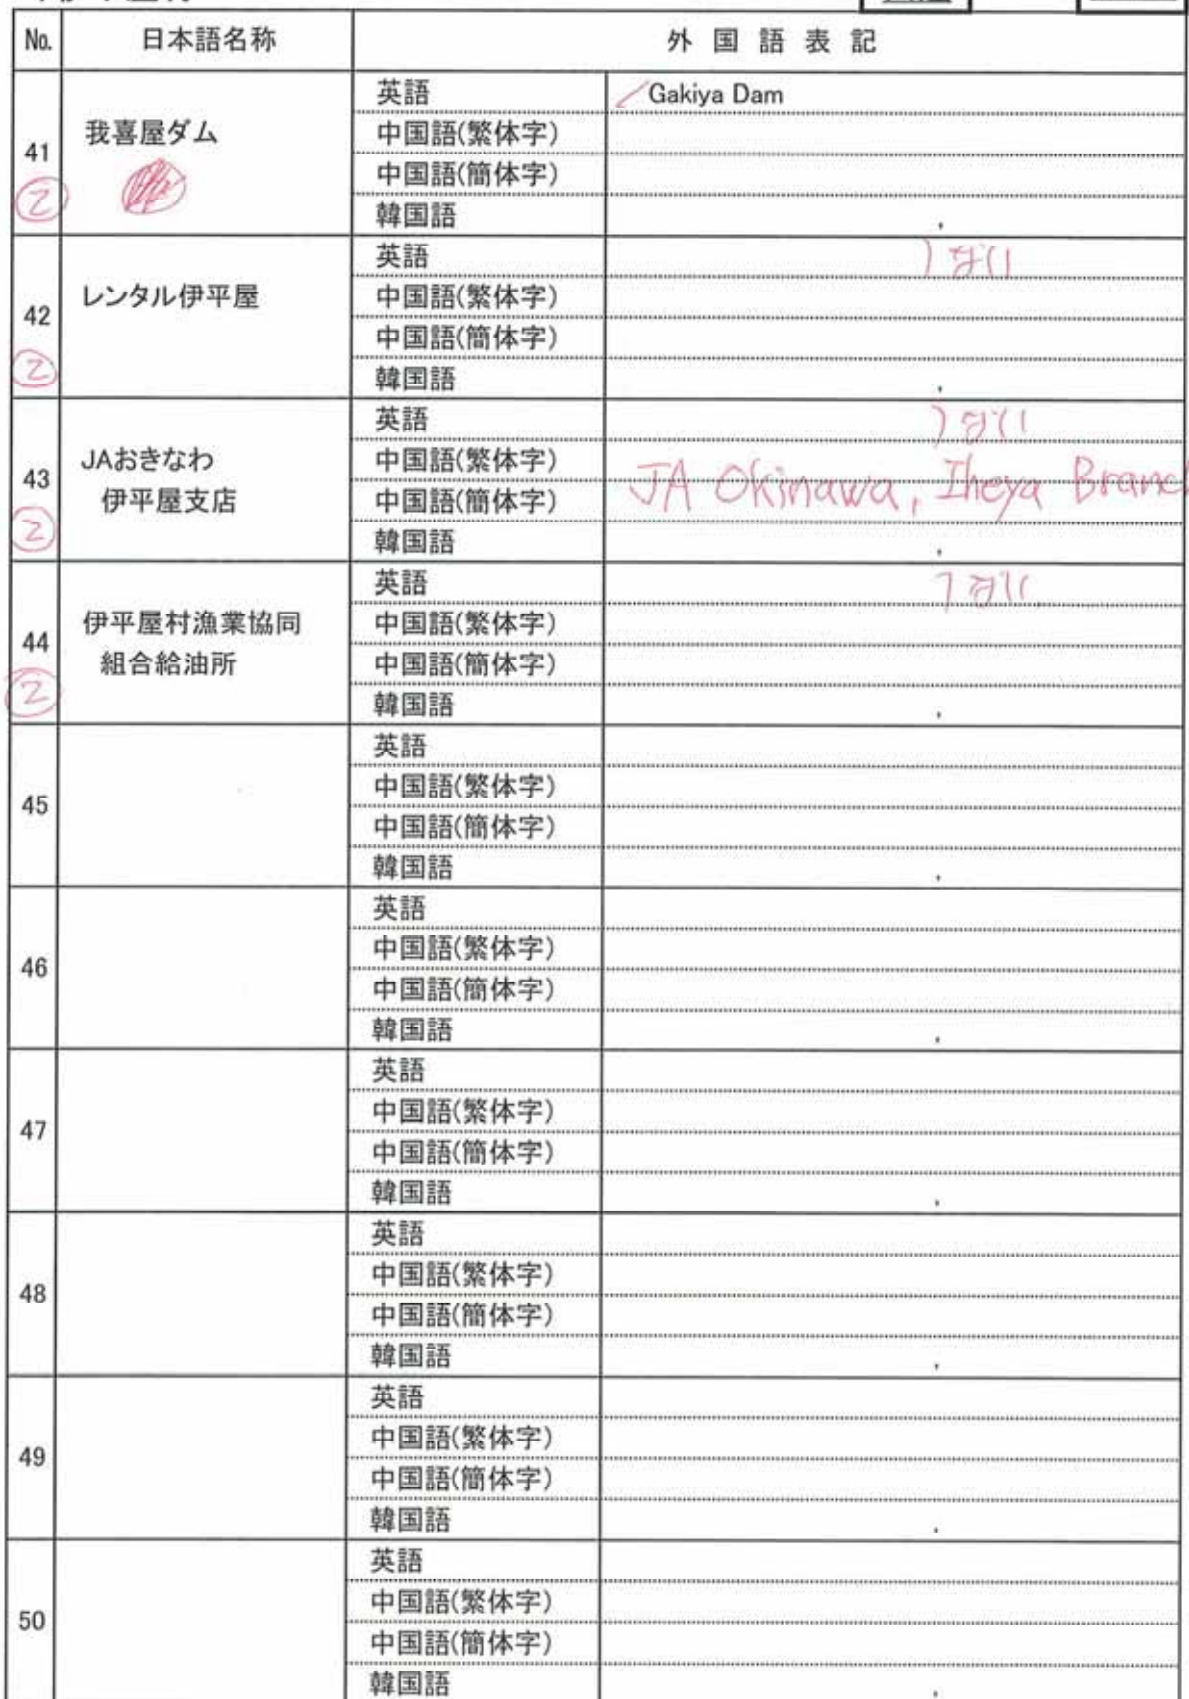 No. 日本語名称 外国語表記
41 我喜屋ダム
②
英語 Gakiya Dam
中国語(繁体字)
中国語(簡体字)
韓国語
42 レンタル伊平屋
②
英語 ない
中国語(繁体字)
中国語(簡体字)
韓国語
43 JAおきなわ
伊平屋支店
②
英語 ない
中国語(繁体字)
JA Okinawa, Iheya Branch
中国語(簡体字)
韓国語
44 伊平屋村漁業協同
組合給油所
②
英語 ない
中国語(繁体字)
中国語(簡体字)
韓国語
45
英語
中国語(繁体字)
中国語(簡体字)
韓国語
46
英語
中国語(繁体字)
中国語(簡体字)
韓国語
47
英語
中国語(繁体字)
中国語(簡体字)
韓国語
48
英語
中国語(繁体字)
中国語(簡体字)
韓国語
49
英語
中国語(繁体字)
中国語(簡体字)
韓国語
50
英語
中国語(繁体字)
中国語(簡体字)
韓国語